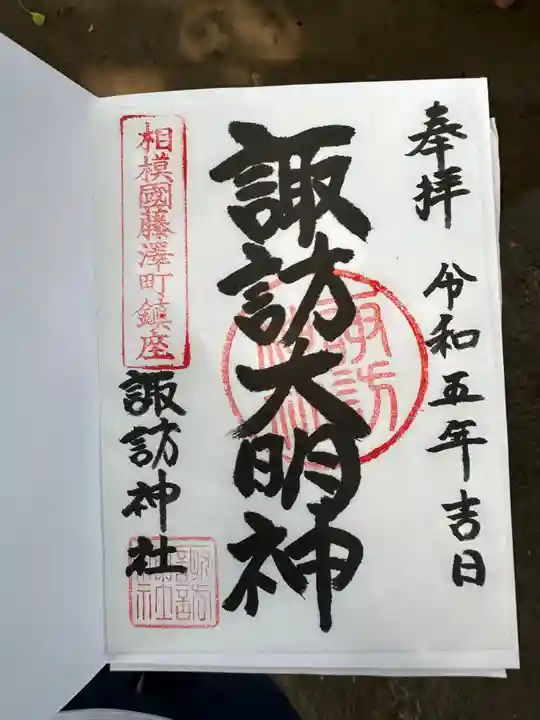 奉拝 令和五年吉日
諏訪大明神
諏訪神社
相模國藤澤町鎮座
諏訪神社
諏訪神社